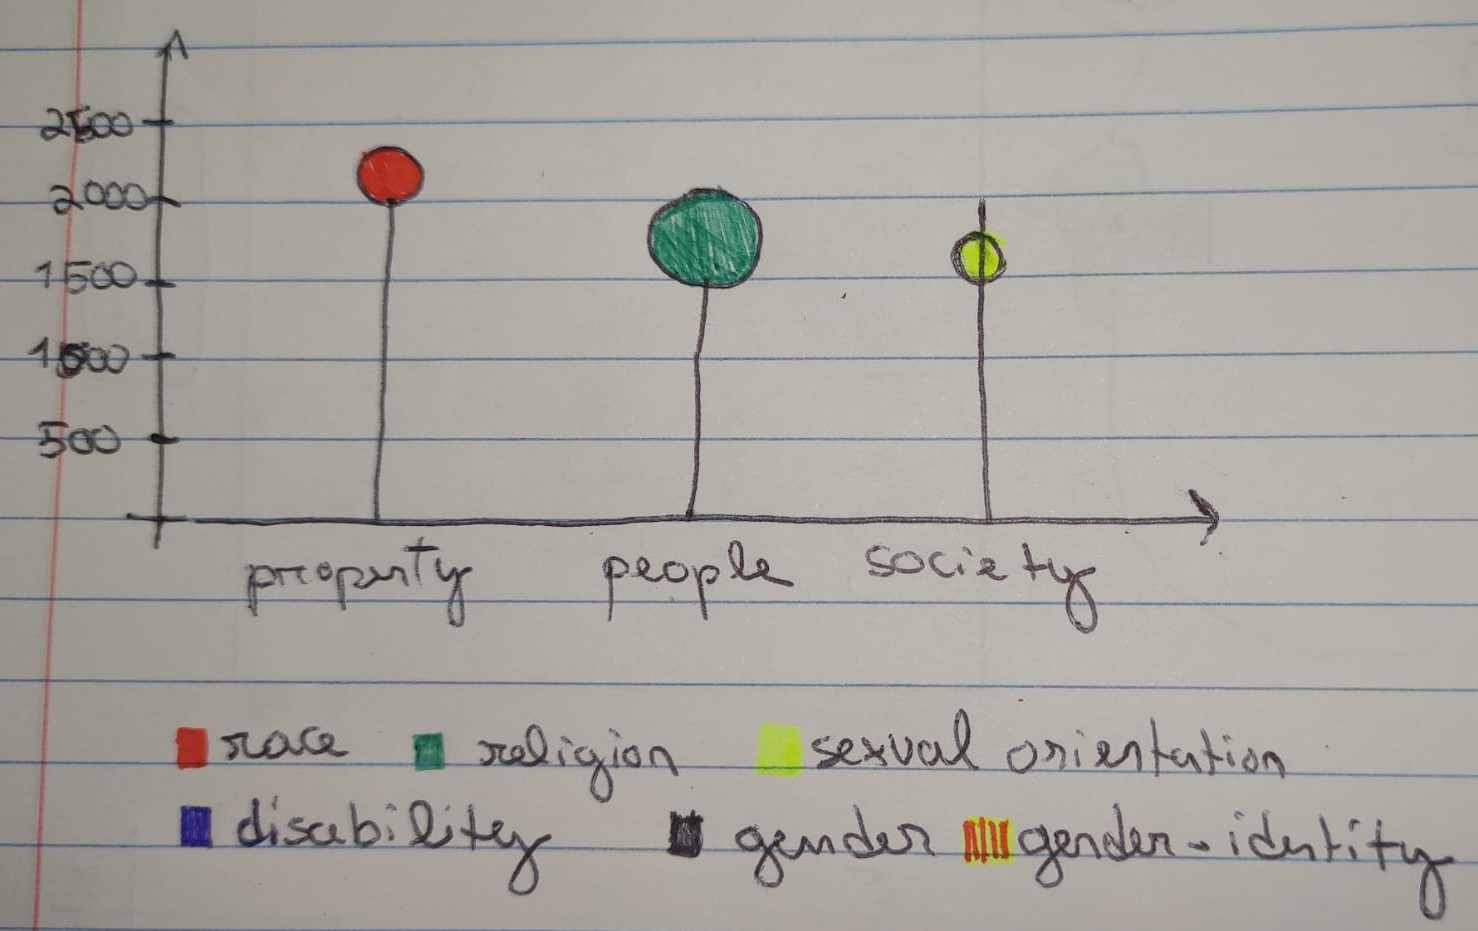 2500
2000
1500
1000
500
property people society
race religion sexual orientation
disability gender gender-identity